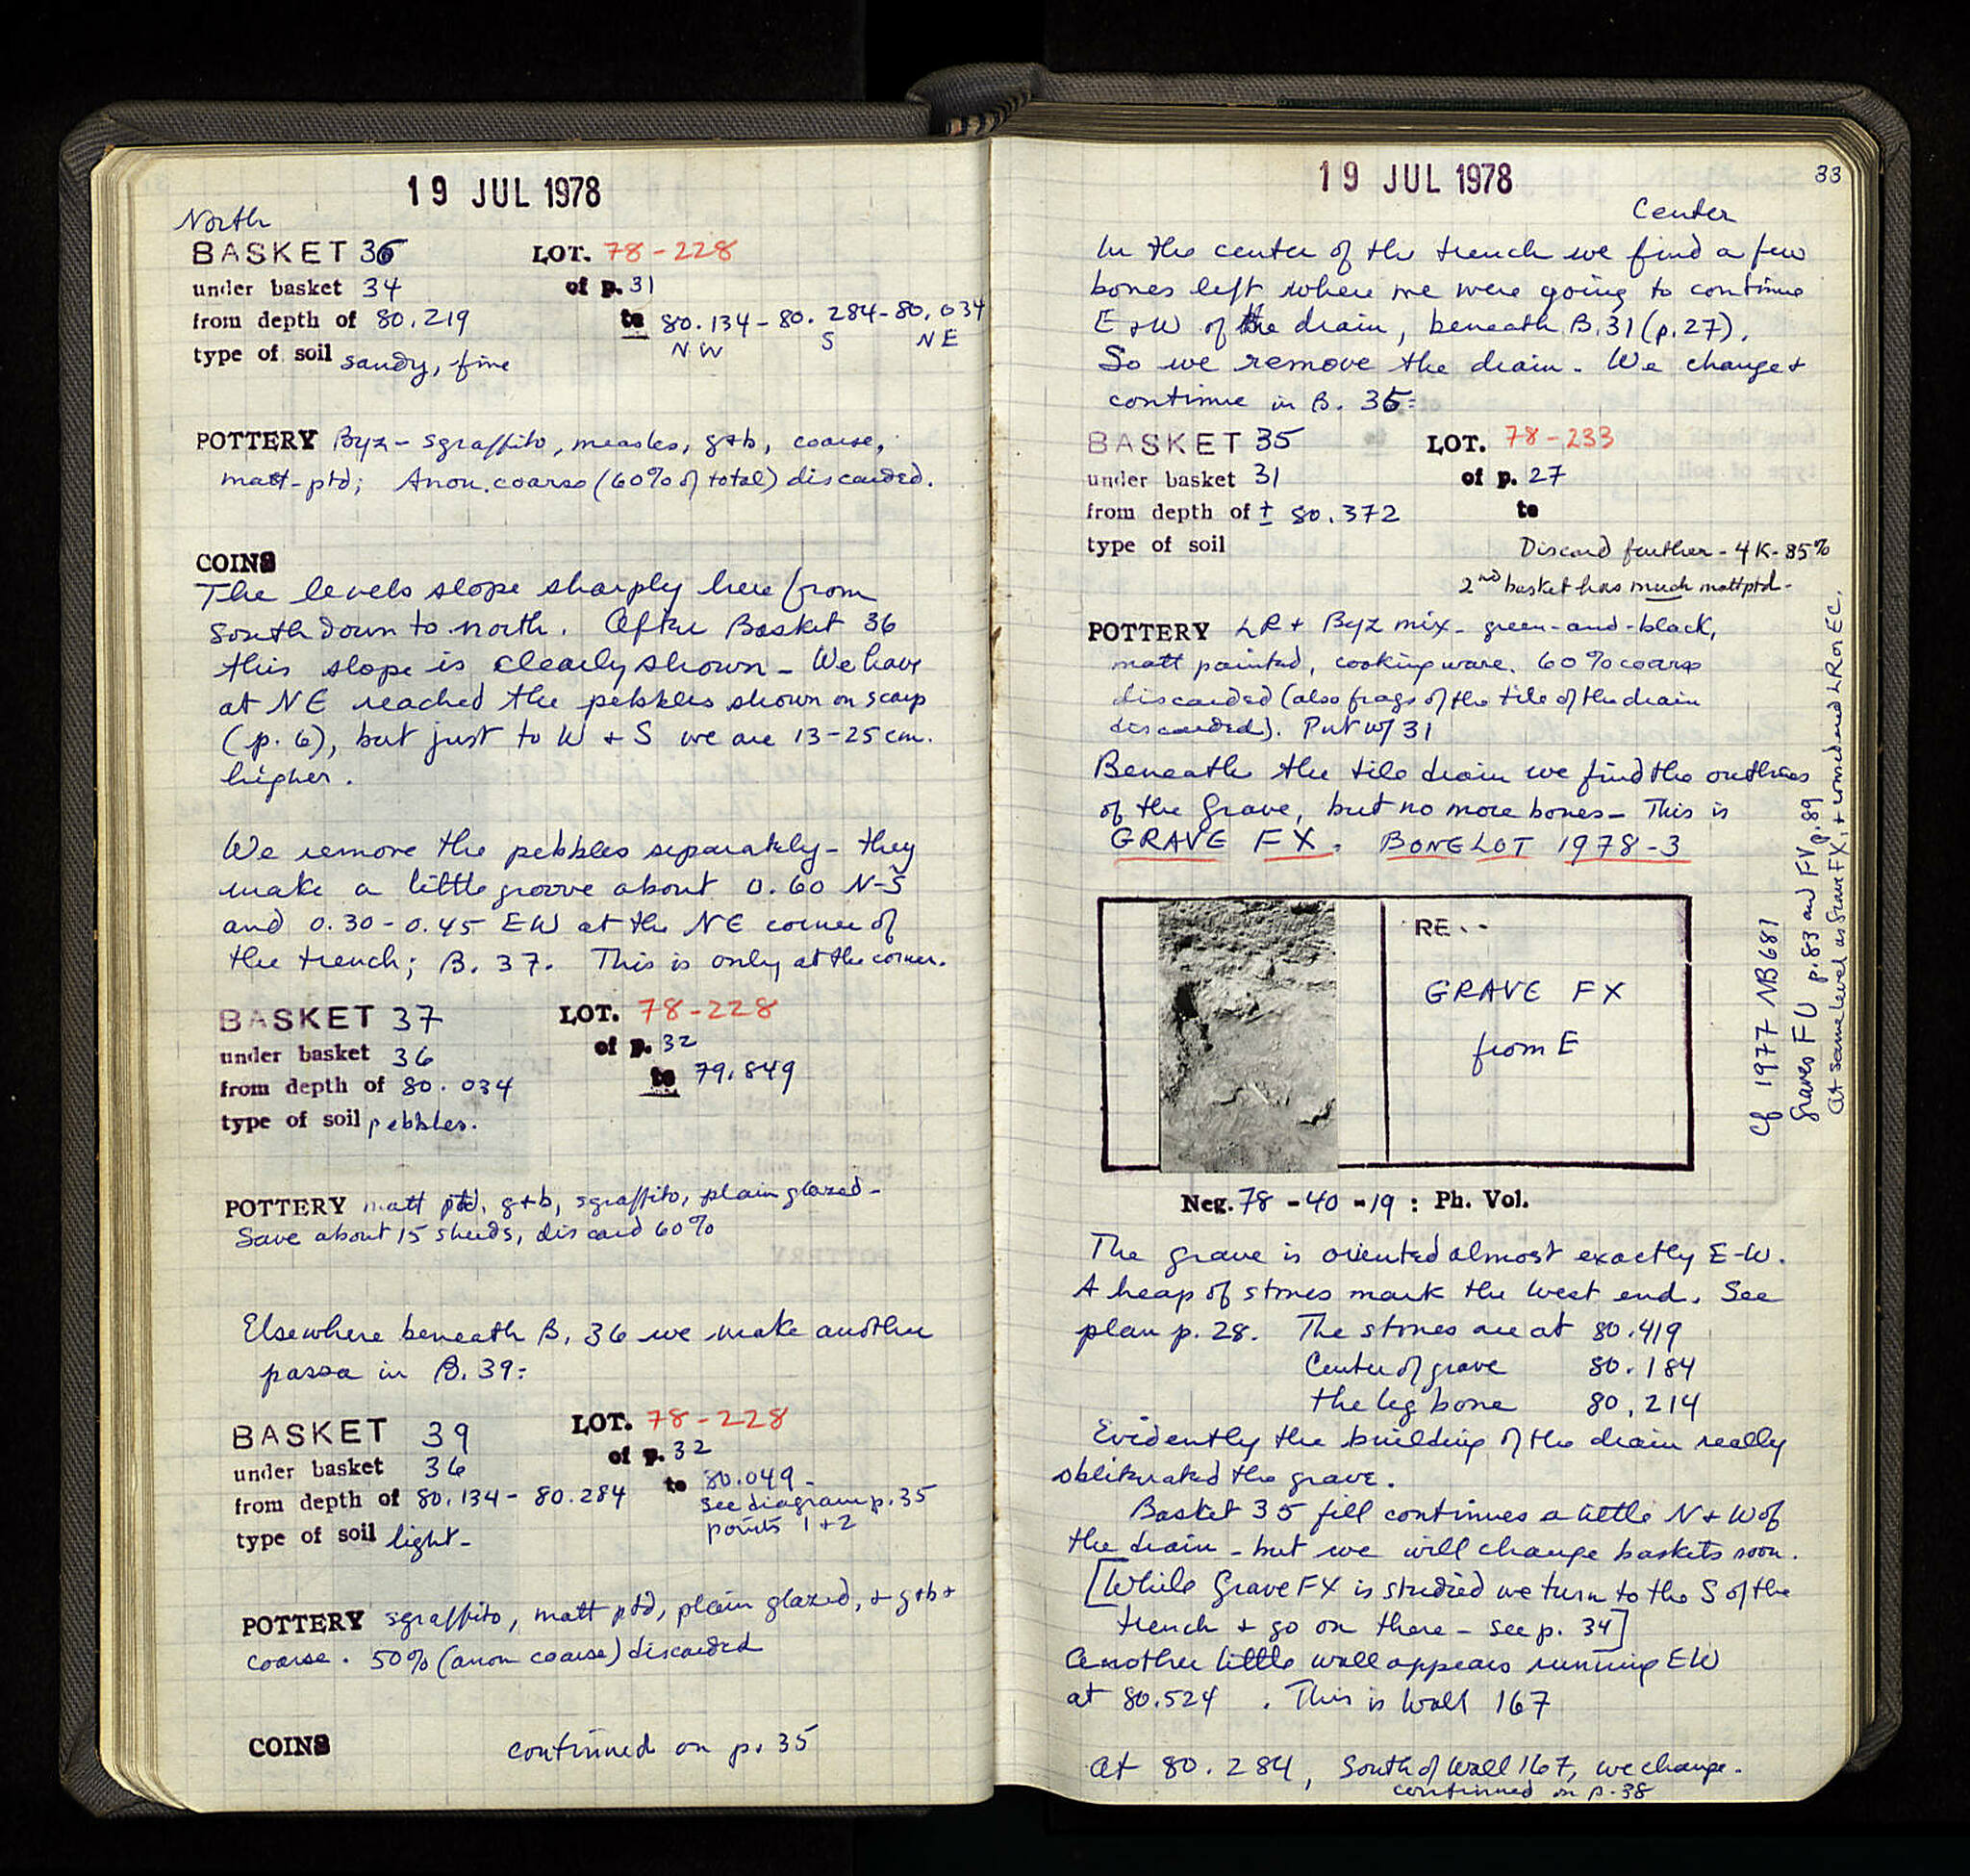 19 JUL 1978
North
BASKET 36 LOT. 78-228
under basket 34 of p. 31
from depth of 80.219 to 80.134 - 80.284 - 80.034
NW S NE
type of soil sandy, fine
POTTERY Byz - sgraffito, measles, g+b, coarse,
matt-ptd; Anon. coarse (60% of total) discarded.
COINS
The levels slope sharply here from
south down to north. After Basket 36
this slope is clearly shown - We have
at NE reached the pebbles shown on scarp
(p. 6), but just to W + S we are 13-25 cm.
higher.
We remove the pebbles separately - they
make a little groove about 0.60 N-S
and 0.30-0.45 EW at the NE corner of
the trench; B. 37. This is only at the corner.
BASKET 37 LOT. 78-228
under basket 36 of p. 32
from depth of 80.034 to 79.849
type of soil pebbles.
POTTERY matt ptd, g+b, sgraffito, plain glazed -
Save about 15 sherds, discard 60%
Elsewhere beneath B. 36 we make another
passa in B. 39:
BASKET 39 LOT. 78-228
under basket 36 of p. 32
from depth of 80.134 - 80.284 to 80.049 -
see diagram p. 35
points 1+2
type of soil light -
POTTERY sgraffito, matt ptd, plain glazed, + g+b +
coarse. 50% (anon coarse) discarded
COINS continued on p. 35
19 JUL 1978
33
Center
In the center of the trench we find a few
bones left where we were going to continue
E + W of the drain, beneath B. 31 (p. 27).
So we remove the drain. We change +
continue in B. 35:
BASKET 35 LOT. 78-233
under basket 31 of p. 27
from depth of ± 80.372 to
type of soil
Discard further - 4 K - 85%
2nd basket has much matt ptd -
POTTERY LR + Byz mix - green-and-black,
matt painted, cooking ware. 60% coarse
discarded (also frags of the tile of the drain
discarded). Put w/ 31
Beneath the tile drain we find the outlines
of the Grave, but no more bones - This is
GRAVE FX. BONE LOT 1978-3
RE..
GRAVE FX
from E
Neg. 78 - 40 - 19 : Ph. Vol.
Cf 1977 NB 681
Graves FU p. 83 and FV p. 89
At same level as Grave FX, + + LR on EC.
The grave is oriented almost exactly E-W.
A heap of stones mark the west end. See
plan p. 28. The stones are at 80.419
Center of grave 80.184
the leg bone 80.214
Evidently the building of the drain really
obliterated the grave.
Basket 35 fill continues a little N + W of
the drain - but we will change baskets soon.
[While Grave FX is studied we turn to the S of the
trench + go on there - see p. 34]
Another little wall appears running EW
at 80.524. This is Wall 167
At 80.284, South of Wall 167, we change.
continued on p. 38